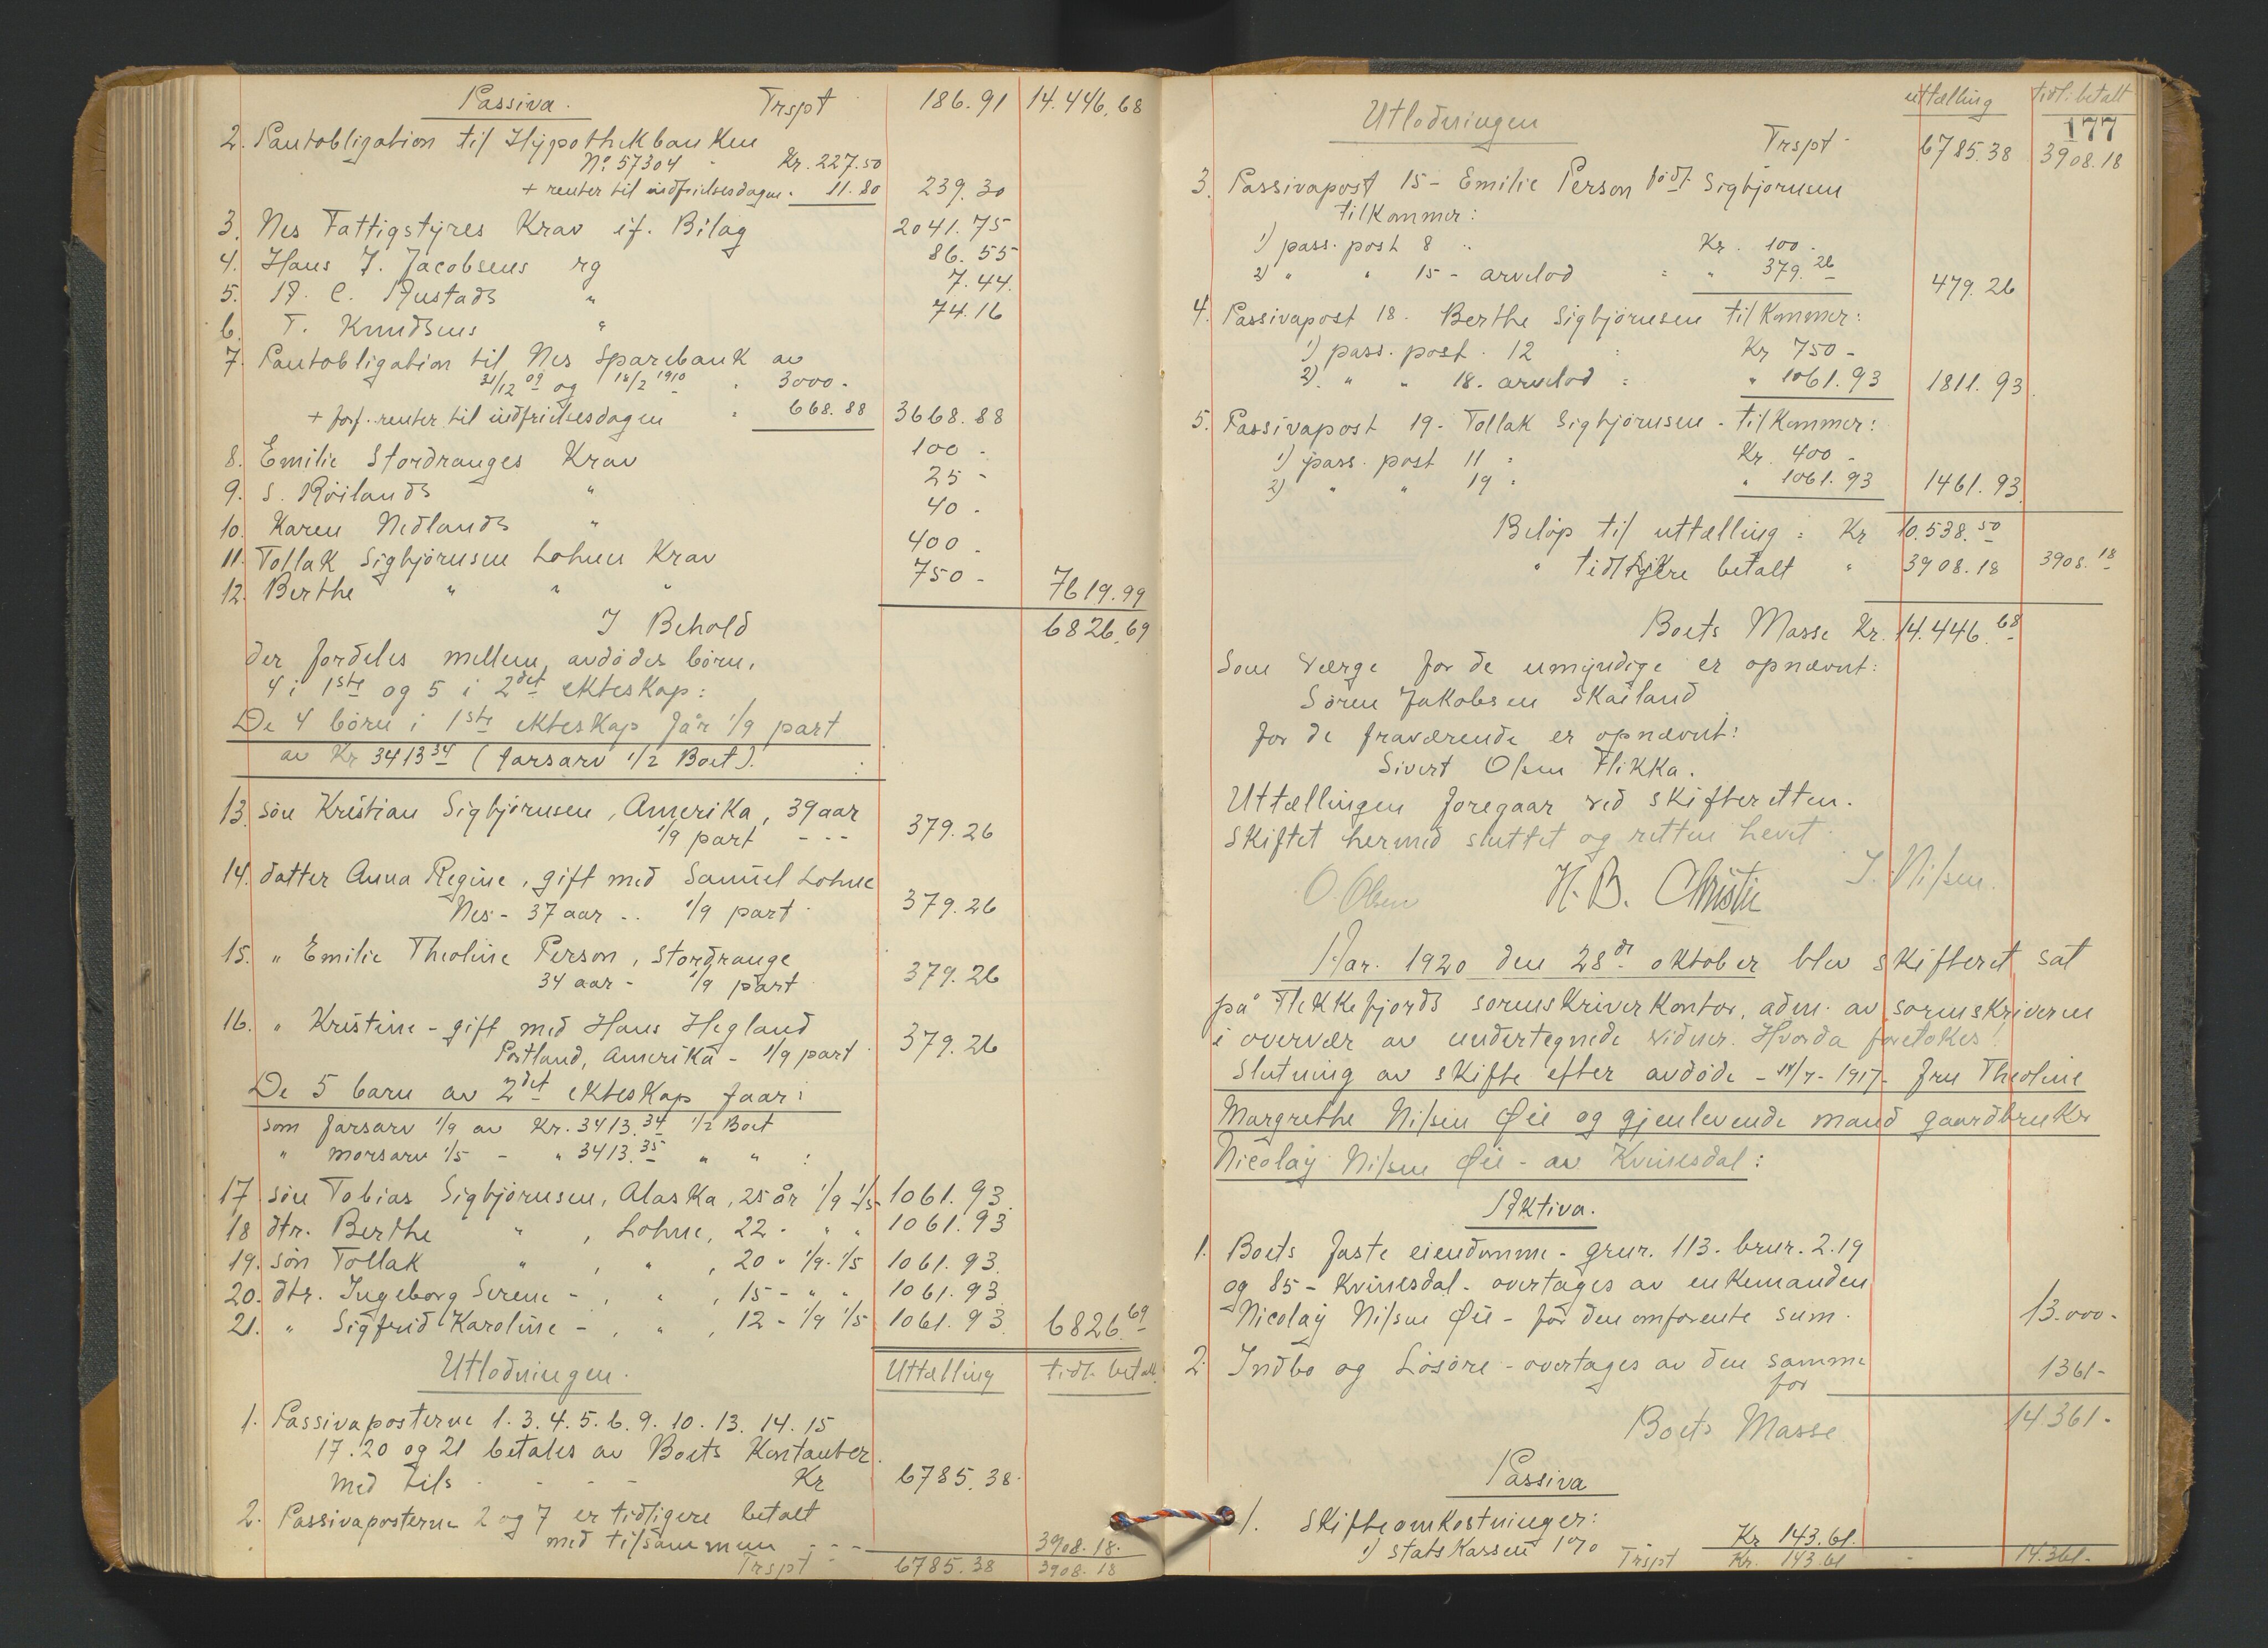 Passiva. Trspt 186.91 14.446,68
2. Pantobligation til Hypothekbanken
No 57304 - Kr. 227.50
+ renter til indfrielsesdagen. 11.80 239.30
3. Nes Fattigstyres Krav if. Bilag 2041.75
4. Hans J. Jacobsens rg 86.55
5. A. C. Austads " 7.44.
6. T. Knudsens " 74.16
7. Pantobligation til Nes Sparebank av
31/12 09 og 18/2 1910 - 3000.-
+ forf. renter til indfrielsesdagen " 668.88 3668.88
8. Emilie Stordranges Krav 100 -
9. S. Røilands " 25 -
10. Karen Nedlands " 40 -
11. Tollak Sigbjørnsen Lohnes Krav 400 -
12. Berthe " " " 750 - 7619.99
I Behold 6826,69
der fordeles mellem avdødes børn,
4 i 1ste og 5 i 2det ekteskap:
De 4 børn i 1ste ekteskap får 1/9 part
av Kr 3413 34 (farsarv 1/2 Boet). :
13. søn Kristian Sigbjørnsen, Amerika, 39 aar
1/9 part - - - 379.26
14. datter Anna Regine, gift med Samuel Lohne
Nes - 37 aar .. 1/9 part . 379.26
15. " Emilie Theoline Person, Stordrange
34 aar - 1/9 part 379.26
16. " Kristine - gift med Hans Hegland
Portland, Amerika - 1/9 part 379.26
De 5 barn av 2det ekteskap faar:
som farsarv 1/9 av Kr. 3413.34 1/2 Boet
" morsarv 1/5 - " 3413.35 " " :
17 søn Tobias Sigbjørnsen, Alaska, 25 år 1/9 1/5 1061.93.
18 dtr. Berthe " , Lohne, 22 - " " 1061.93
19. søn Tollak " , " , 20 " 1/9. 1/5 1061.93.
20. dtr. Ingeborg Serene - , " , 15 - " " 1061.93
21. " Sigfrid Karoline - , " , 12 - 1/9 1/5 1061.93. 6826.69
Utlodningen. Uttælling tidl. betalt.
1. Passivaposterne 1.3.4.5.6.9.10.13.14.15
17.20 og 21 betales av Boets Kontanter.
med tils. - - - Kr 6785.38.
2. Passivaposterne 2 og 7 er tidligere betalt
med tilsammen - - - 3908.18.
Trspt - 6785.38 3908.18
uttælling tidl. betalt
177
Utlodningen Trspt - 6785.38 3908.18
3. Passivapost 15 - Emilie Person født Sigbjørnsen
tilkommer:
1) pass. post 8 .. Kr. 100 -
2) " " 15 - arvelod = " 379.26 479.26
4. Passivapost 18. Berthe Sigbjørnsen tilkommer:
1) pass. post. 12 : Kr 750 -
2). " " 18. arvelod = " 1061.93 1811.93.
5. Passivapost 19 - Tollak Sigbjørnsen - tilkommer:
1) pass. post 11 = Kr. 400 -
2) " " 19 = " 1061.93 1461.93.
Beløp til uttælling = Kr 10.538.50
" tidligere betalt " 3908.18 3908.18
Boets Masse Kr. 14.446.68
Som værge for de umyndige er opnævnt:
Søren Jakobsen Skailand
for de fraværende er opnævnt:
Sivert Olsen Flikka.
Uttællingen foregaar ved skifteretten.
Skiftet hermed sluttet og retten hevet.
O. Olsen H. B. Christie J. Nilsen.
Aar. 1920 den 28de oktober blev skifteret sat
på Flekkefjords sorenskriverkontor, adm. av sorenskriveren
i overvær av undertegnede vidner. Hvorda foretokes:
Slutning av skifte efter avdøde - 14/7 - 1917 - fru Theoline
Margrethe Nilsen Øie og gjenlevende mand gaardbruker
Nicolay Nilsen Øie - av Kvinesdal:
Aktiva.
1. Boets faste eiendomme - grnr. 113. brnr. 2.19
og 85 - Kvinesdal - overtages av enkemanden
Nicolay Nilsen Øie - for den omforente sum. 13.000-
2. Indbo og Løsøre - overtages av den samme
for 1361-
Boets Masse 14.361-
Passiva
1. Skifteomkostninger:
1) Statskassen 1% - Kr 143.61.
Trspt Kr. 143.61 - 14.361-